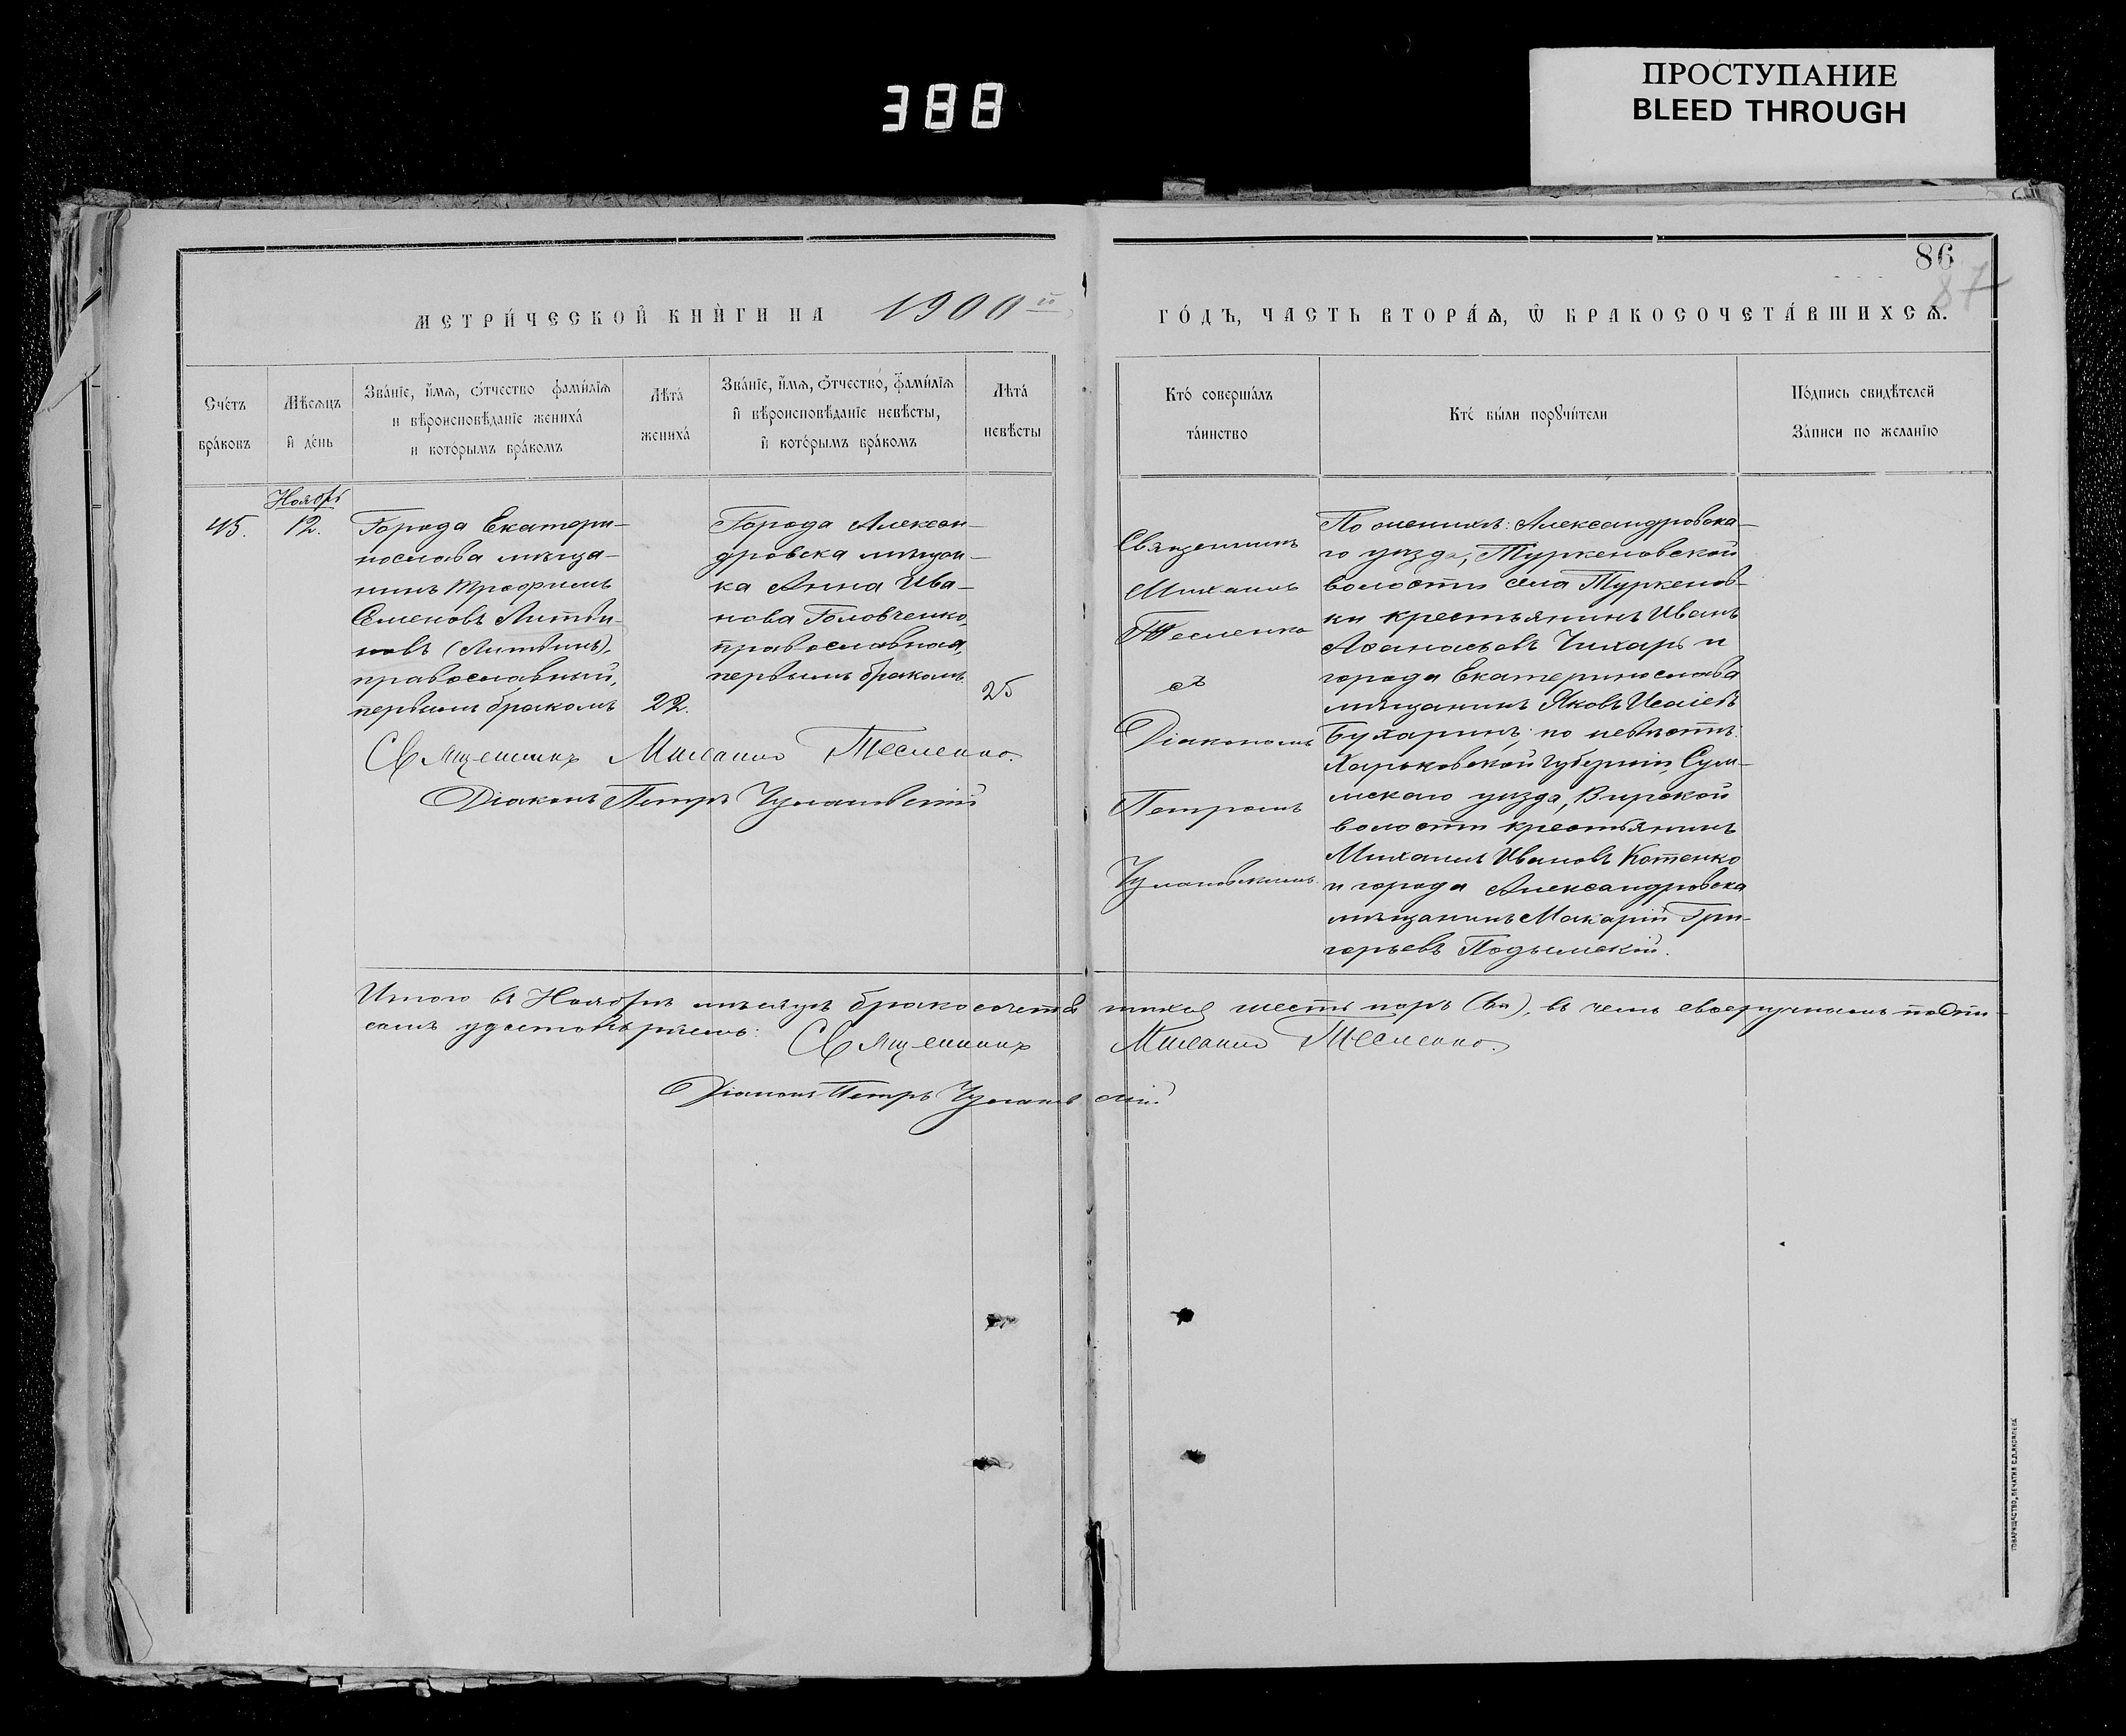 388
ПРОСТУПАНИЕ
BLEED THROUGH
86
87
МЕТРИ́ЧЕСКОЙ КНИ́ГИ НА 1900й
ГО́ДЪ, ЧАСТЬ ВТОРА́Ѧ, Ѿ БРАКОСОЧЕТА́ВШИХСѦ.
Сче́тъ
бра́ковъ
Мѣ́сѧцъ
и҆ де́нь
Зва́нїе, и҆́мѧ, ѻ҆́тчество фами́лїѧ
и вѣроисповѣ́данїе жениха́
и кото́рымъ бра́комъ
Лѣ́та
жениха́
Зва́нїе, и҆́мѧ, ѻ҆́тчество, фами́лїѧ
и҆ вѣроисповѣ́данїе невѣ́сты,
и҆ кото́рымъ бра́комъ
Лѣ́та
невѣ́сты
Кто́ соверша́лъ
та́инство
Кто́ бы́ли порꙋчи́тели
По́дпись свидѣ́телей
За́писи по жела́нїю
45.
Ноябрь
12.
Города Екатери-
нослава мѣща-
нинъ Трофимъ
Семеновъ Литви-
новъ (Литвинъ),
православный,
первымъ бракомъ
22.
Города Алексан-
дровска мѣщан-
ка Анна Ива-
нова Головченко,
православная,
первымъ бракомъ.
25
Священникъ Михаилъ Тесленко.
Діаконъ Петръ Чумановскій
Священникъ
Михаилъ
Тесленко
съ
Діакономъ
Петромъ
Чумановскимъ.
По женихѣ: Александровска-
го уѣзда, Туркеновской
волости села Туркенов-
ки крестьянинъ Иванъ
Аѳанасьевъ Чихарь и
города Екатеринослава
мѣщанинъ Яковъ Исаіевъ
Бухаринъ; по невѣстѣ:
Харьковской губерніи, Сум-
мскаго уѣзда, Вирской
волости крестьянинъ
Михаилъ Ивановъ Котенко
и города Александровска
мѣщанинъ Макарій Гри-
горьевъ Подымской.
Итого въ Ноябрѣ мѣсяцѣ бракосочетавшихся шесть паръ (6п), въ чемъ своеручнымъ подпи-
сомъ удостовѣряемъ:
Священникъ Михаилъ Тесленко.
Діаконъ Петръ Чумановскій
ТОВАРИЩЕСТВО „ПЕЧАТНЯ С.П. ЯКОВЛЕВА“